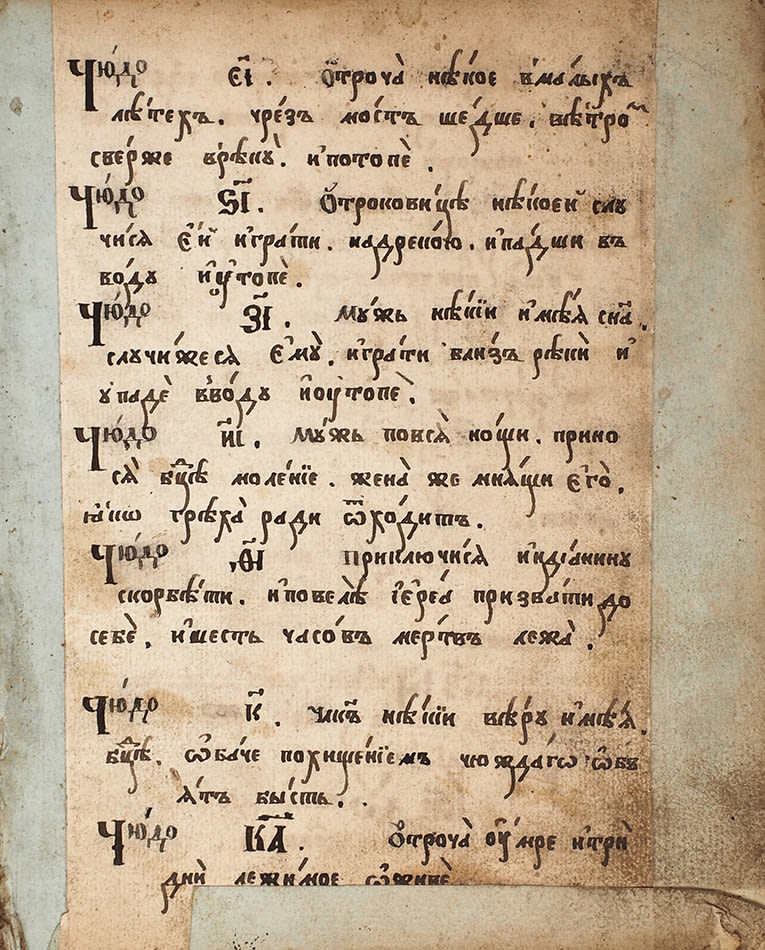 Чю́до є҃і. Ѻ҆троча̀ нѣ́кое в̾ма́лыхъ
лѣ́техъ. чре́зъ мо́стъ ше́дше, вѣ́тро
све́рже врѣкꙋ̀. и҆потопѐ.
Чю́до ѕ҃і. Ѻ҆трокови́цѣ нѣ́коей слꙋ
чи́ся є҆́й и҆гра́ти. надрекою, и҆па́дши въ
во́дꙋ и҆ᲂу҆топѐ.
Чю́до з҃і. Мꙋ́жъ нѣ́кїи и҆мѣ́я сн҃а,
слꙋчи́жеся є҆мꙋ̀, и҆гра́ти бли́зъ рѣки̾ и҆
ꙋпадѐ вво́дꙋ и҆ᲂу҆топѐ.
Чю́до и҃і. Мꙋ́жъ повся̀ но́щи, прино
ся̀ бц҃ѣ моле́нїе. жена̀ же мня́щи є҆го̀,
ꙗ҆́кѡ грѣха̀ ради ѿхо́дитъ.
Чю́до ѳ҃і Приключи́ся и҆ндїа́нинꙋ
скорбѣ́ти. и҆повелѣ̀ і҆ере́а призва́ти до
себѐ, и҆ше́сть часо́въ ме́ртвъ лежа̀.
Чю́до к҃. Члк҃ъ нѣ́кїи вѣ́рꙋ и҆мѣ́я.
бц҃ѣ. ѻ҆ба́че похище́нїемъ чюжда́гѡ ѡ҆б̾
я́тъ бы́сть.
Чю́до к҃а. Ѻ҆троча̀ ᲂу҆́мре и҆три̾
дни̾ лежи́мое ѡ҆живѐ